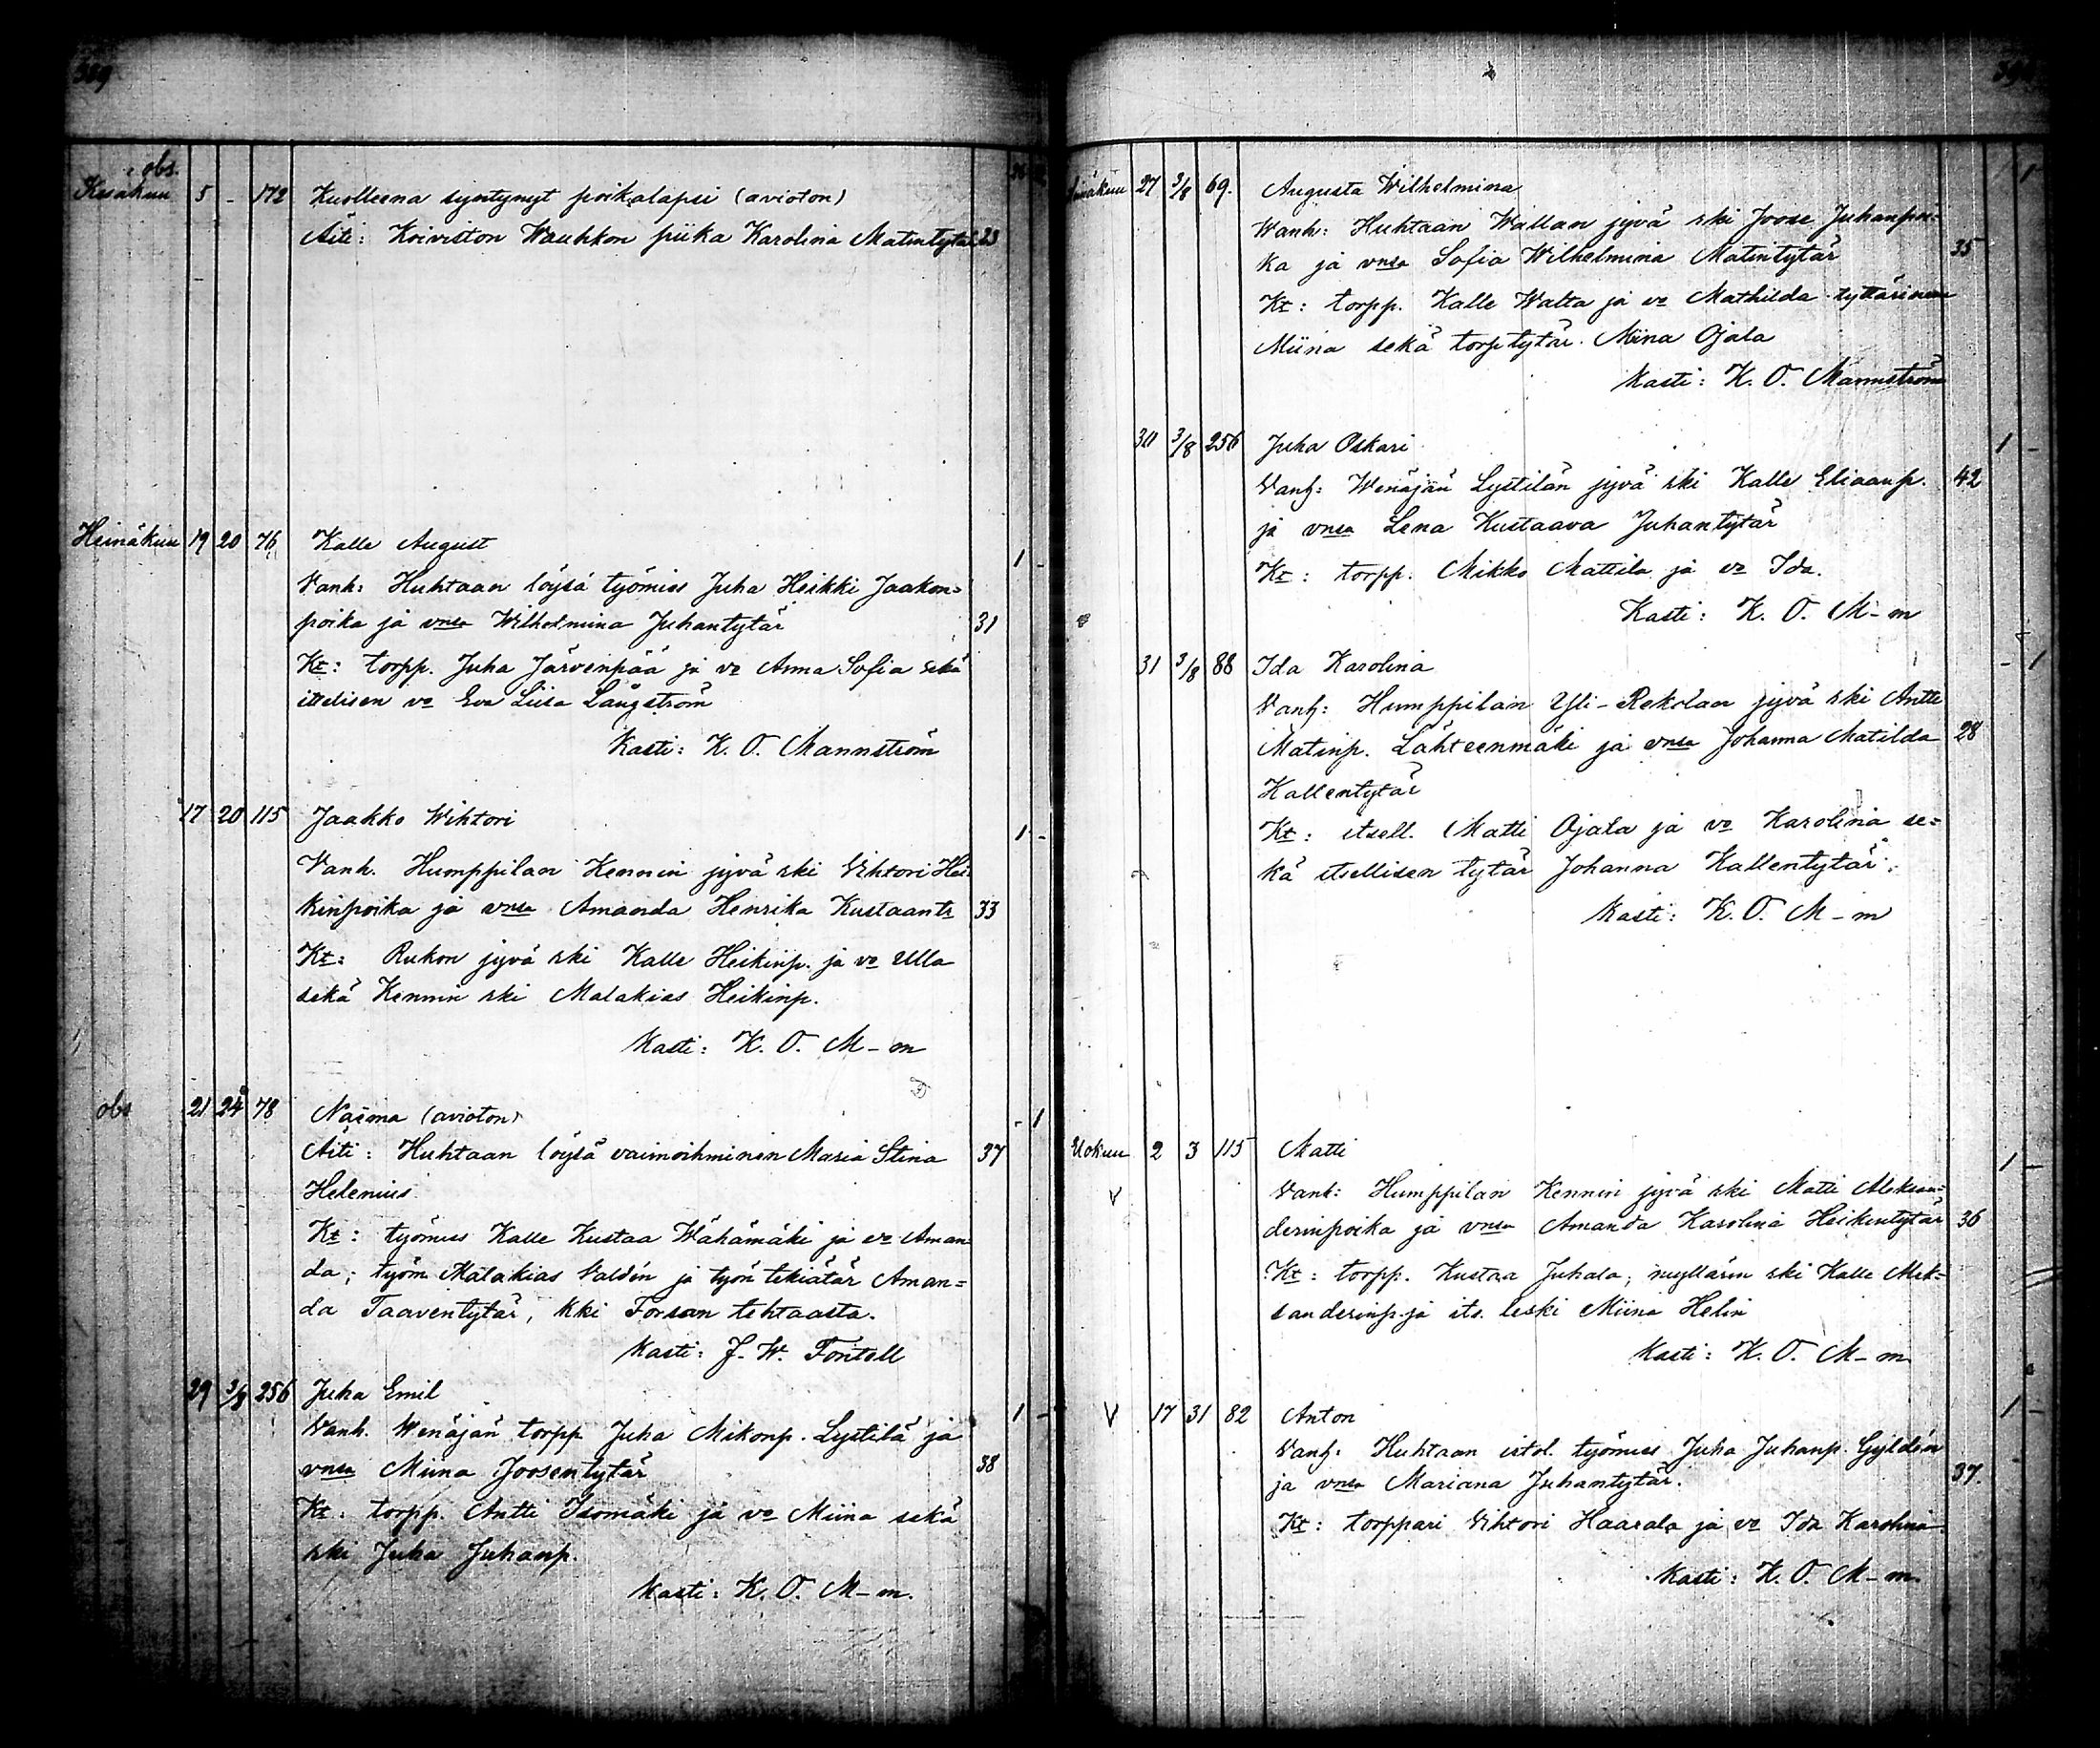 389
obs.
Kesäkuu 5 - 172 Kuolleena syntynyt poikalapsi (avioton)
Äiti: Koiviston Wauhkon piika Karolina Matintytär 23
Heinäkuu 19 20 76 Kalle August 1 -
Vanh: Huhtaan löysä työmies Juha Heikki Jaakon-
poika ja vnsa Wilhelmina Juhantytär 31
Kt: torpp. Juha Järvenpää ja vo Anna Sofia sekä
itselisen vo Eva Liisa Långström
Kasti: K. O. Mannström
17 20 115 Jaakko Wihtori 1 -
Vanh. Humppilan Kennin jyvä rki Vihtori Hei-
kinpoika ja vnsa Amanda Henrika Kustaantr 33
Kt: Rukon jyvä rki Kalle Heikinp. ja vo Ulla
sekä Kennin rki Malakias Heikinp.
Kasti: K. O. M-m
obs 21 24 78 Naima (avioton) - 1
Äiti: Huhtaan löysä vaimoihminen Maria Stina 37
Helenius
Kt: työmies Kalle Kustaa Wähämäki ja vo Aman-
da; työm Malakias Valdén ja työn tekiätär Aman-
da Taaventytär, kki Forssan tehtaasta.
Kasti: J. W. Fontell
29 3/8 256 Juha Emil 1 -
Vanh. Wenäjän torpp Juha Mikonp. Lystilä ja
vnsa Miina Joosentytär 38
Kt: torpp. Antti Isomäki ja vo Miina sekä
rki Juha Juhanp.
Kasti: K. O. M-m.
Heinäkuu 27 3/8 69. Augusta Wilhelmina - 1
Wanh: Huhtaan Wallan jyvä rki Joose Juhanpoi-
ka ja vnsa Sofia Wilhelmina Matintytär 35
Kt: torpp. Kalle Walta ja vo Mathilda tyttärineen
Miina sekä torp tytär. Miina Ojala
Kasti: K. O. Mannström
30 3/8 256 Juha Oskari 1 -
Vanh: Wenäjän Lystilän jyvä rki Kalle Eliaanp. 42
ja vnsa Lena Kustaava Juhantytär
Kt: torpp. Mikko Mattila ja vo Ida.
Kasti: K. O. M-m
31 3/8 88 Ida Karolina - 1
Vanh: Humppilan Yli-Rekolan jyvä rki Antti
Matinp. Lähteenmäki ja vnsa Johanna Matilda 28
Kallentytär
Kt: itsell. Matti Ojala ja vo Karolina se-
kä itsellisen tytär Johanna Kallentytär.
Kasti: K. O. M-m
Elokuu 2 3 115 Matti 1 -
Vanh: Humppilan Kennin jyvä rki Matti Aleksan-
derinpoika ja vnsa Amanda Karolina Heikintytär 36
Kt: torpp. Kustaa Juhala; myllärin rki Kalle Alek-
sanderinp. ja its. leski Miina Helin
Kasti: K. O. M-m.
V 17 31 82 Anton 1 -
Vanh: Huhtaan istol. työmies Juha Juhanp. Gyldén
ja vnsa Mariana Juhantytär. 37.
Kt: torppari Vihtori Haarala ja vo Ida Karolina
Kasti: K. O. M-m.